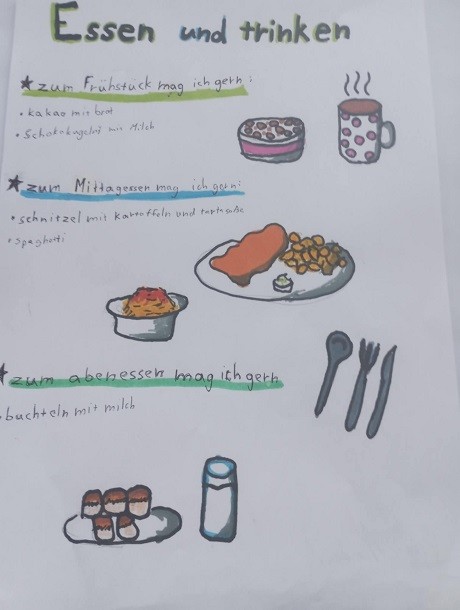 Essen und trinken
zum Frühstück mag ich gern:
kakao mit brot
Schokokugeln mit Milch
zum Mittagessen mag ich gern:
schnitzel mit kartoffeln und
spaghetti
zum abenessen mag ich gern
buchteln mit milch